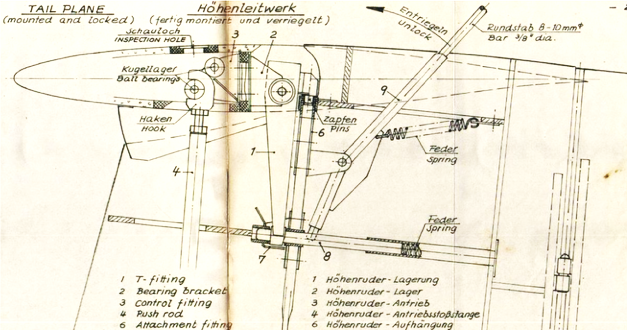 TAIL PLANE
(mounted and locked)
Höhenleitwerk
(fertig montiert und verriegelt)
Schauloch
INSPECTION HOLE
3
2
Kugellager
Ball bearings
Haken
Hook
4
1
Entriegeln
unlock
Rundstab 8-10mm⌀
Bar 3/8" dia.
9
Zapfen
Pins
6
Feder
Spring
Feder
Spring
7
8
1 T-fitting
2 Bearing bracket
3 Control fitting
4 Push rod
6 Attachment fitting
1 Höhenruder-Lagerung
2 Höhenruder-Lager
3 Höhenruder-Antrieb
4 Höhenruder-Antriebsstoßstange
6 Höhenruder-Aufhängung